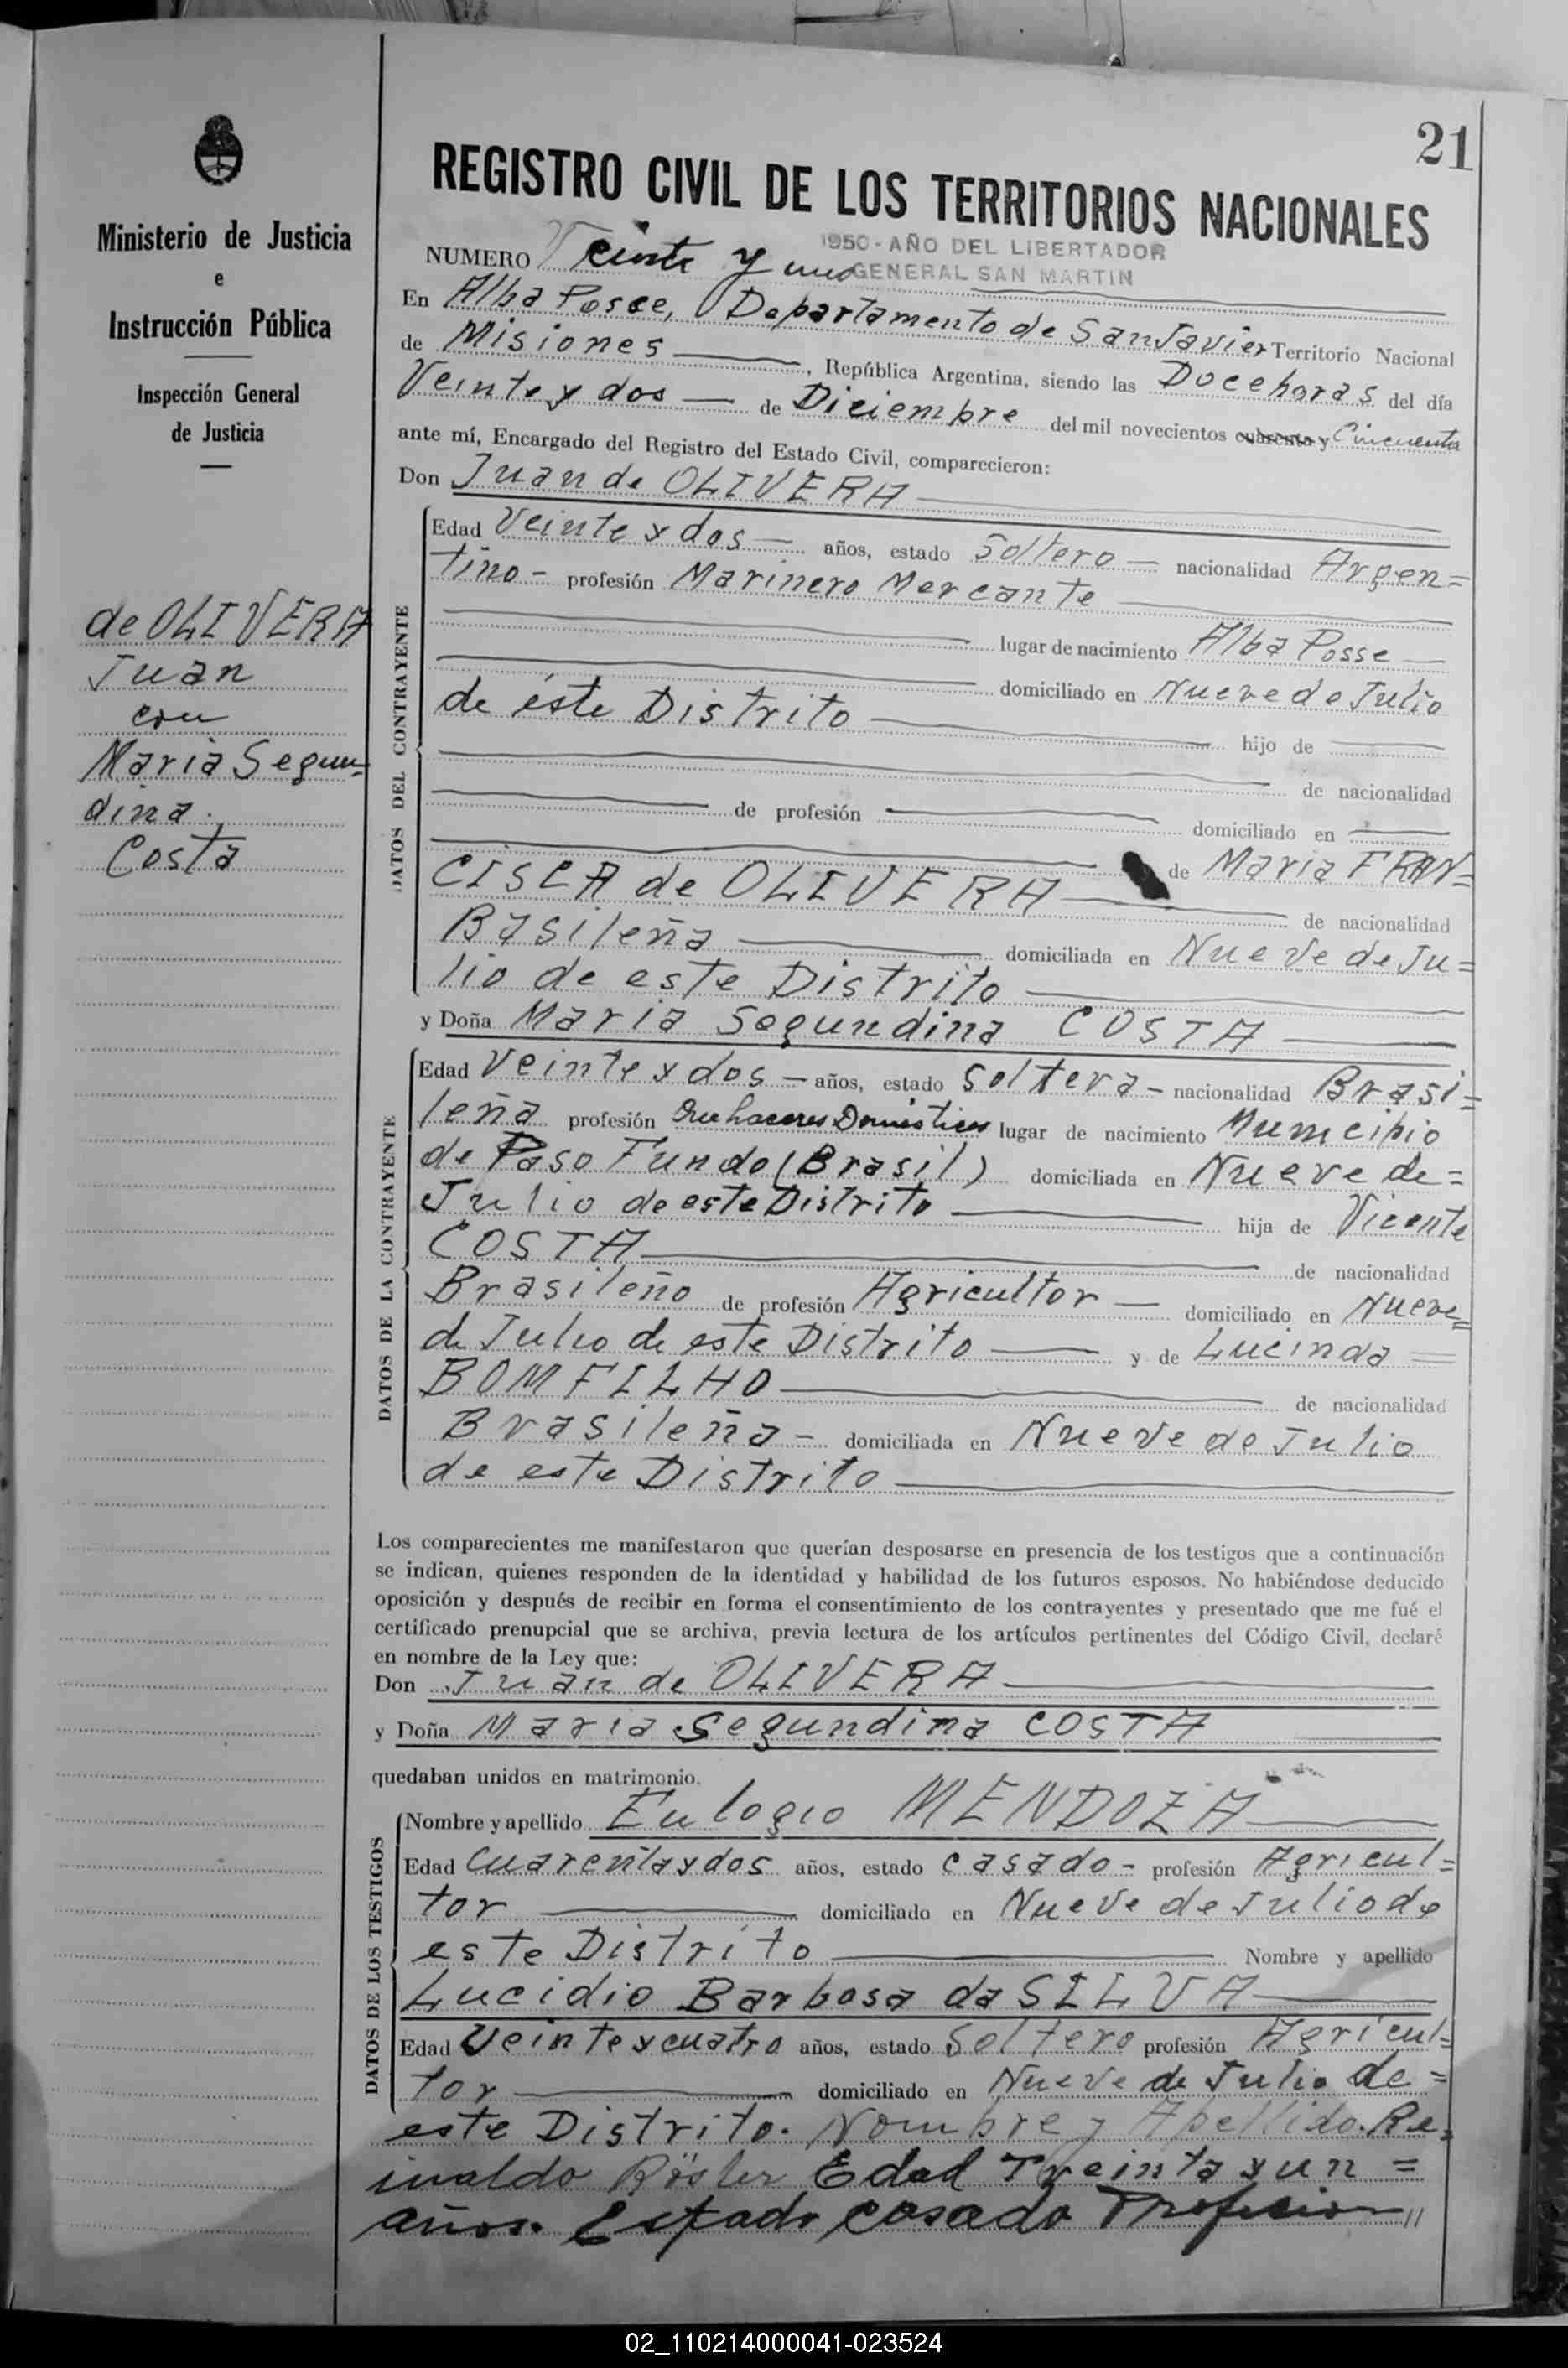 21
Ministerio de Justicia
e
Instrucción Pública
Inspección General
de Justicia
de OLIVERA
Juan
con
Maria Segun-
dina.
Costa
REGISTRO CIVIL DE LOS TERRITORIOS NACIONALES
1950 - AÑO DEL LIBERTADOR
GENERAL SAN MARTIN
NUMERO Veinte y uno
En Alba Posse, Departamento de San Javier Territorio Nacional
de Misiones, República Argentina, siendo las Doce horas del día
Veinte y dos de Diciembre del mil novecientos cuarenta y Cincuenta
ante mí, Encargado del Registro del Estado Civil, comparecieron:
Don Juan de OLIVERA
DATOS DEL CONTRAYENTE
Edad Veinte y dos años, estado Soltero nacionalidad Argen=
tino - profesión Marinero Mercante
lugar de nacimiento Alba Posse
domiciliado en Nueve de Julio
de éste Distrito hijo de
de nacionalidad
de profesión domiciliado en
de Maria FRAN=
CISCA de OLIVERA de nacionalidad
Basileña domiciliada en Nueve de Ju=
lio de este Distrito
y Doña Maria Segundina COSTA
DATOS DE LA CONTRAYENTE
Edad Veinte y dos - años, estado Soltera - nacionalidad Brasi=
leña profesión Quehaceres Domésticos lugar de nacimiento Municipio
de Paso Fundo (Brasil) domiciliada en Nueve de =
Julio de este Distrito hija de Vicente
COSTA de nacionalidad
Brasileño de profesión Agricultor domiciliado en Nueve=
de Julio de este Distrito y de Lucinda =
BOMFILHO de nacionalidad
Brasileña - domiciliada en Nueve de Julio
de este Distrito
Los comparecientes me manifestaron que querían desposarse en presencia de los testigos que a continuación
se indican, quienes responden de la identidad y habilidad de los futuros esposos. No habiéndose deducido
oposición y después de recibir en forma el consentimiento de los contrayentes y presentado que me fué el
certificado prenupcial que se archiva, previa lectura de los artículos pertinentes del Código Civil, declaré
en nombre de la Ley que:
Don Juan de OLIVERA
y Doña Maria Segundina COSTA
quedaban unidos en matrimonio.
DATOS DE LOS TESTIGOS
Nombre y apellido Eulogio MENDOZA
Edad Cuarenta y dos años, estado Casado - profesión Agricul=
tor domiciliado en Nueve de Julio de
este Distrito Nombre y apellido
Lucidio Barbosa da SILVA
Edad Veinte y cuatro años, estado Soltero profesión Agricul=
tor domiciliado en Nueve de Julio de =
este Distrito. Nombre y Apellido. Re=
inaldo Rösler Edad Treinta y un =
años. Estado Casado Profesion //
02_110214000041-023524